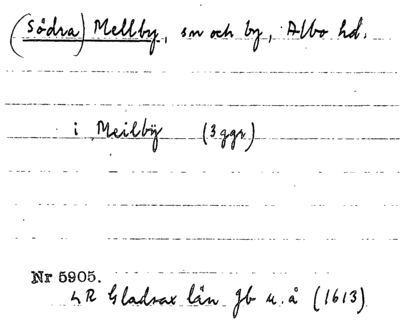 (Södra) Mellby, sn och by, Albo hd.
i Meilbÿ (3 ggr)
Nr 5905.
LR Gladsax län Jb u. å (1613)